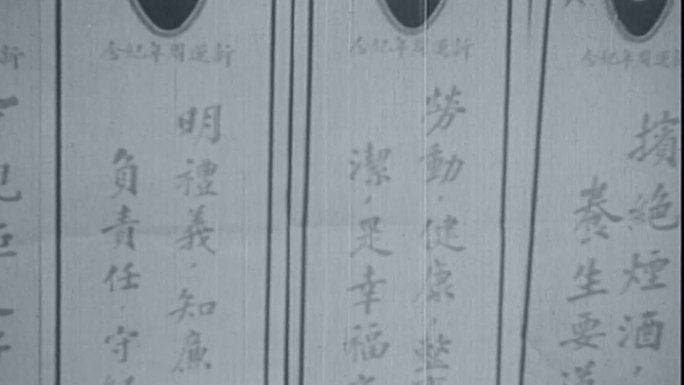 新運周年紀念
擯絕煙酒
養·生要道
新運周年紀念
勞動·健康·整
潔·是幸福
新運周年紀念
明禮義·知廉
負責任·守紀
新